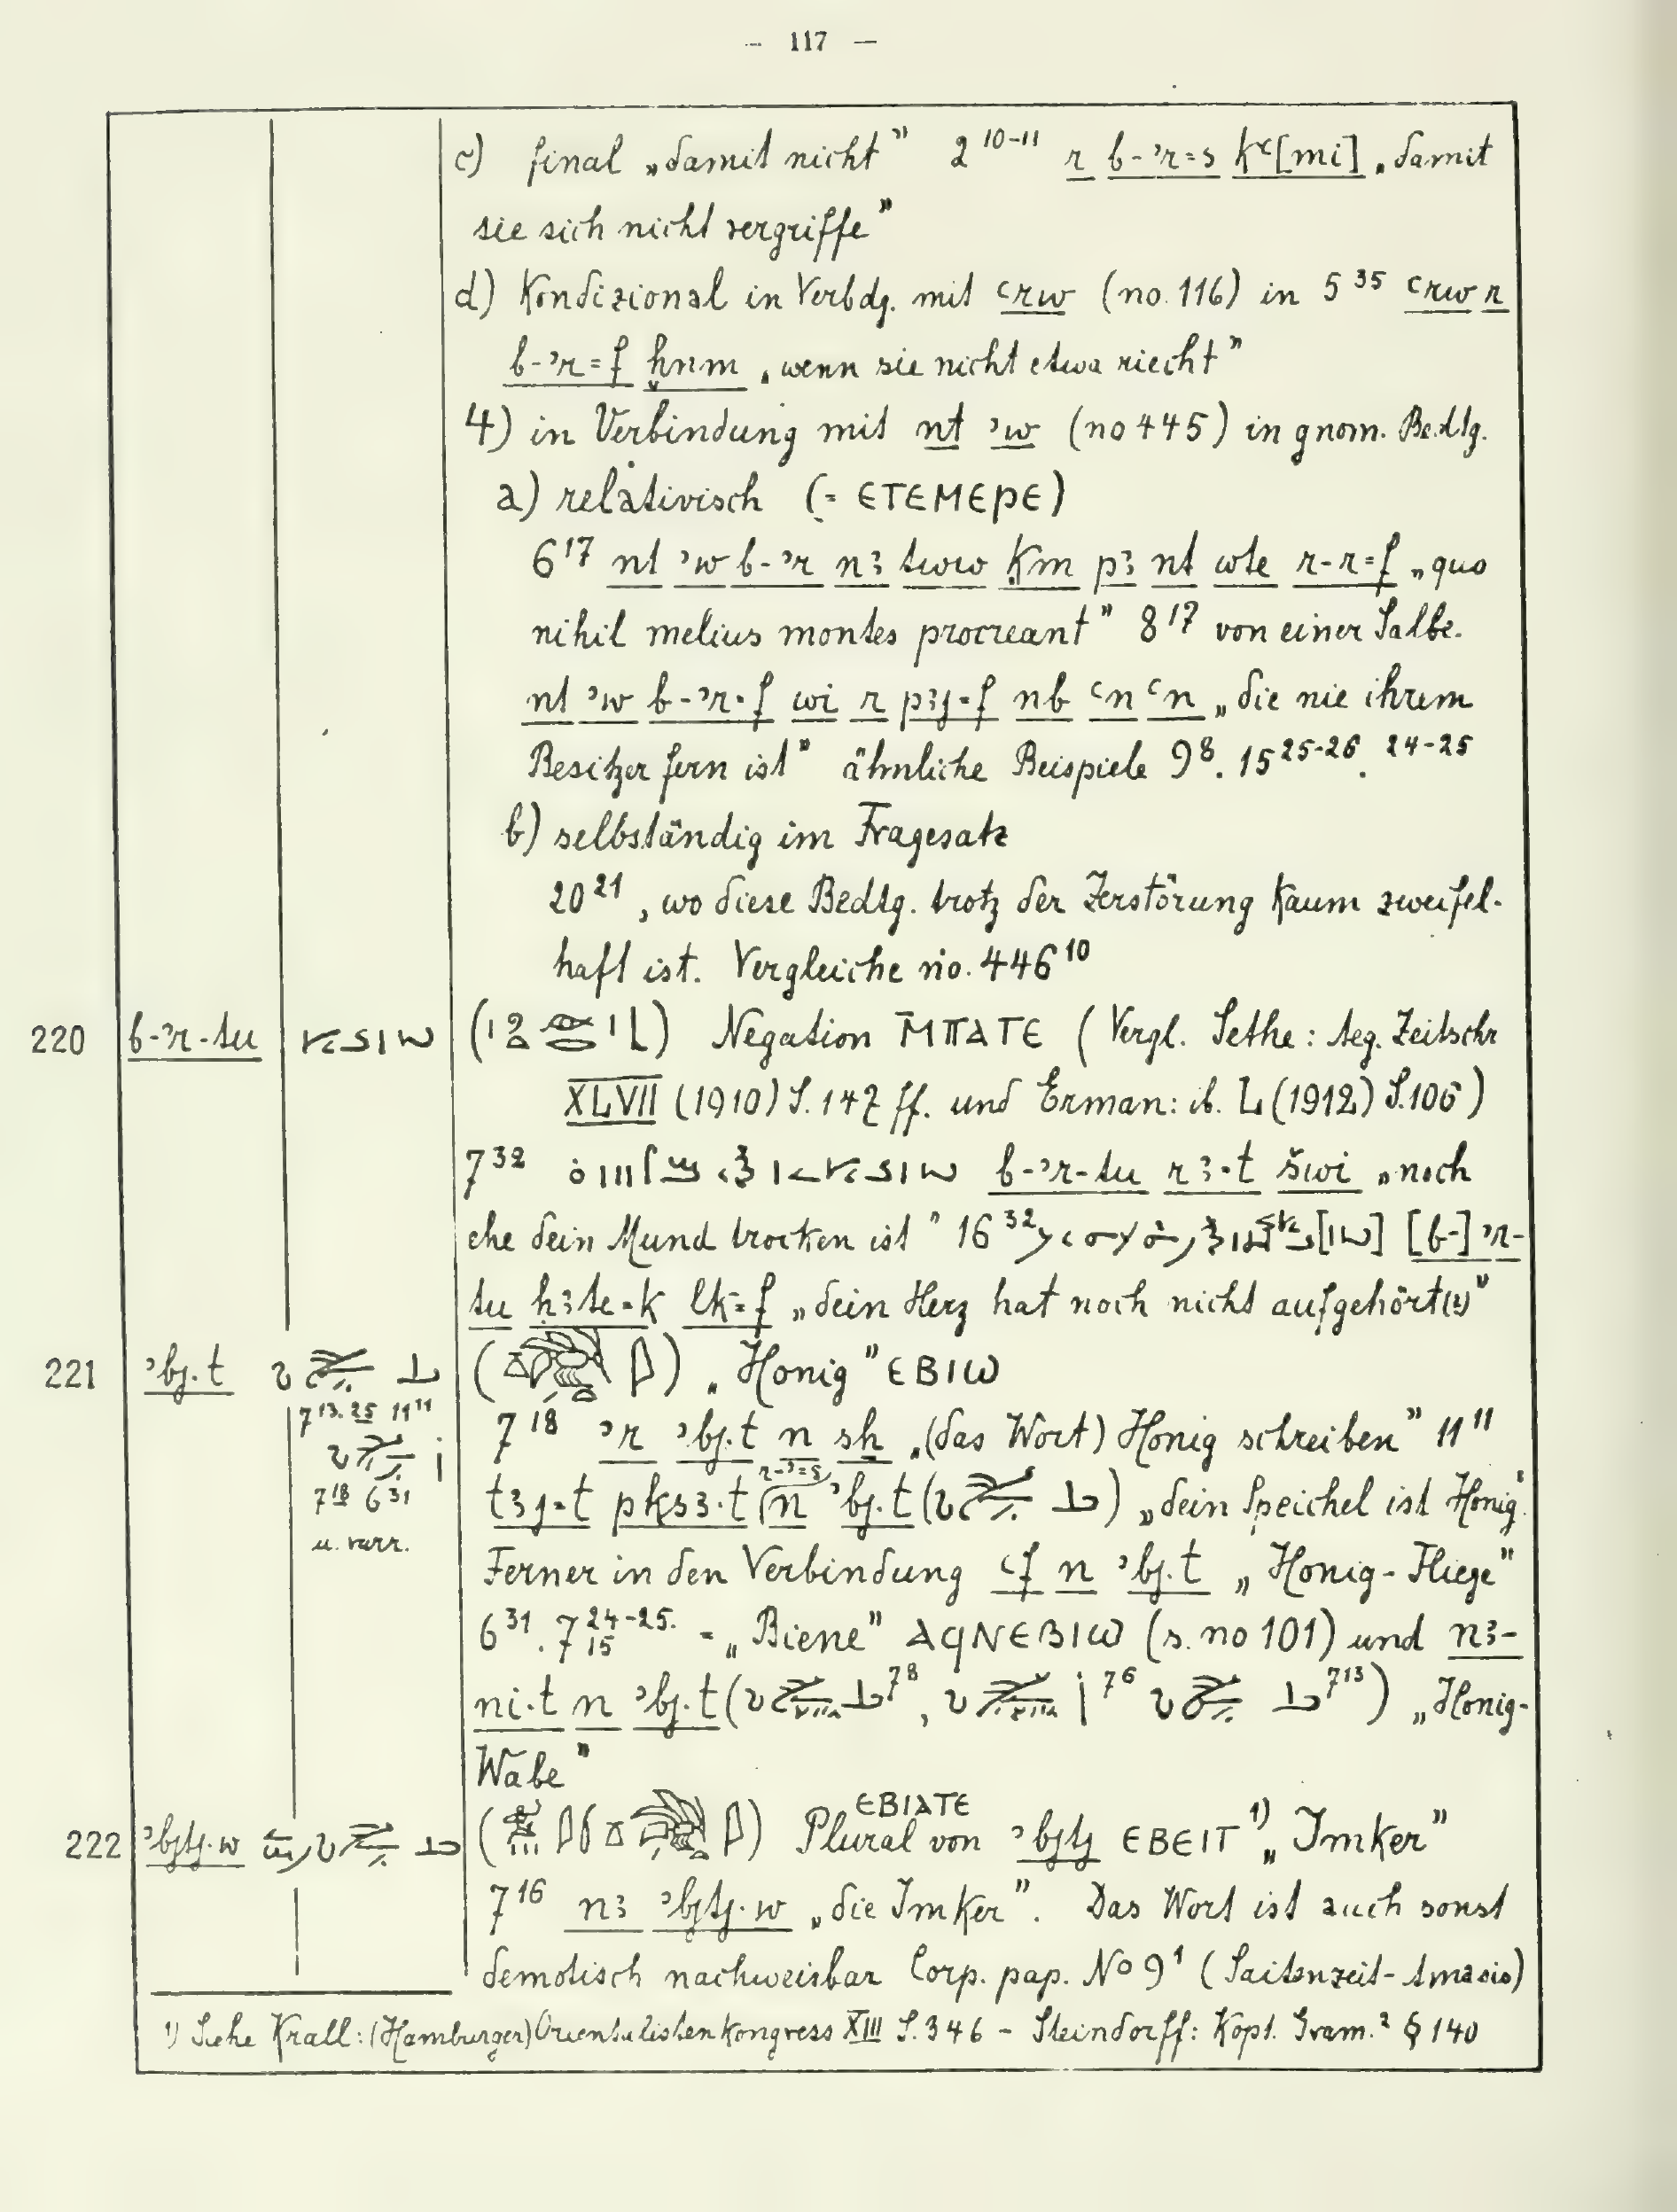 – 117 –
c) final „damit nicht” 2 ¹⁰⁻¹¹ r b-ʾr=s kʿ[mi] „damit
sie sich nicht vergriffe”
d) Kondizional in Verbdg. mit ʿrw (no. 116) in 5 ³⁵ ʿrw r
b-ʾr=f ẖnm „wenn sie nicht etwa riecht”
4) in Verbindung mit nt ʾw (no 445) in gnom. Bedtg.
a) relativisch (= ⲈⲦⲈⲘⲈⲢⲈ)
6¹⁷ nt ʾw b-ʾr nꜣ tww ḳm pꜣ nt wte r-r=f „quo
nihil melius montes procreant” 8¹⁷ von einer Salbe.
nt ʾw b-ʾr=f wi r pꜣj=f nb ʿn ʿn „die nie ihrem
Besitzer fern ist” ähnliche Beispiele 9⁸. 15²⁵⁻²⁶. ²⁴⁻²⁵
b) selbständig im Fragesatz
20²¹, wo diese Bedtg. trotz der Zerstörung kaum zweifel-
haft ist. Vergleiche no. 446¹⁰
220 b-ʾr-tu Negation ⲘⲠⲀⲦⲈ (Vergl. Sethe: Aeg. Zeitschr
XLVII (1910) S. 147 ff. und Erman: ib. L (1912) S. 106)
7³² b-ʾr-tu rꜣ·t šwi „noch
ehe dein Mund trocken ist” 16³² [b-] ʾr-
tu ḥꜣte=k lk=f „dein Herz hat noch nicht aufgehört(?)”
221 ʾbj.t „Honig” ⲈⲂⲒⲰ
7¹³·²⁵ 11¹¹
7¹⁸ 6³¹
u. varr.
7¹⁸ ʾr ʾbj.t n sẖ „(das Wort) Honig schreiben” 11¹¹
tꜣj=t pksꜣ·t (n r-ʾ=s) ʾbj.t „dein Speichel ist Honig”
Ferner in den Verbindung ʿf n ʾbj.t „Honig-Fliege”
6³¹. 7 ²⁴⁻²⁵· ₁₅ = „Biene” ⲀϤⲚⲈⲂⲒⲰ (s. no 101) und nꜣ-
ni·t n ʾbj.t ( ⁷⁸, ⁷⁶ ⁷¹³) „Honig-
Wabe”
222 ʾbjtj.w Plural von ⲈⲂⲒⲀⲦⲈ ʾbjtj ⲈⲂⲈⲒⲦ ¹⁾ „Imker”
7¹⁶ nꜣ ʾbjtj.w „die Imker”. Das Wort ist auch sonst
demotisch nachweisbar Corp. pap. No 9¹ (Saitenzeit-Amasis)
¹⁾ Siehe Krall: (Hamburger) Orientalistenkongress XIII S. 346 – Steindorff: Kopt. Gram.² § 140